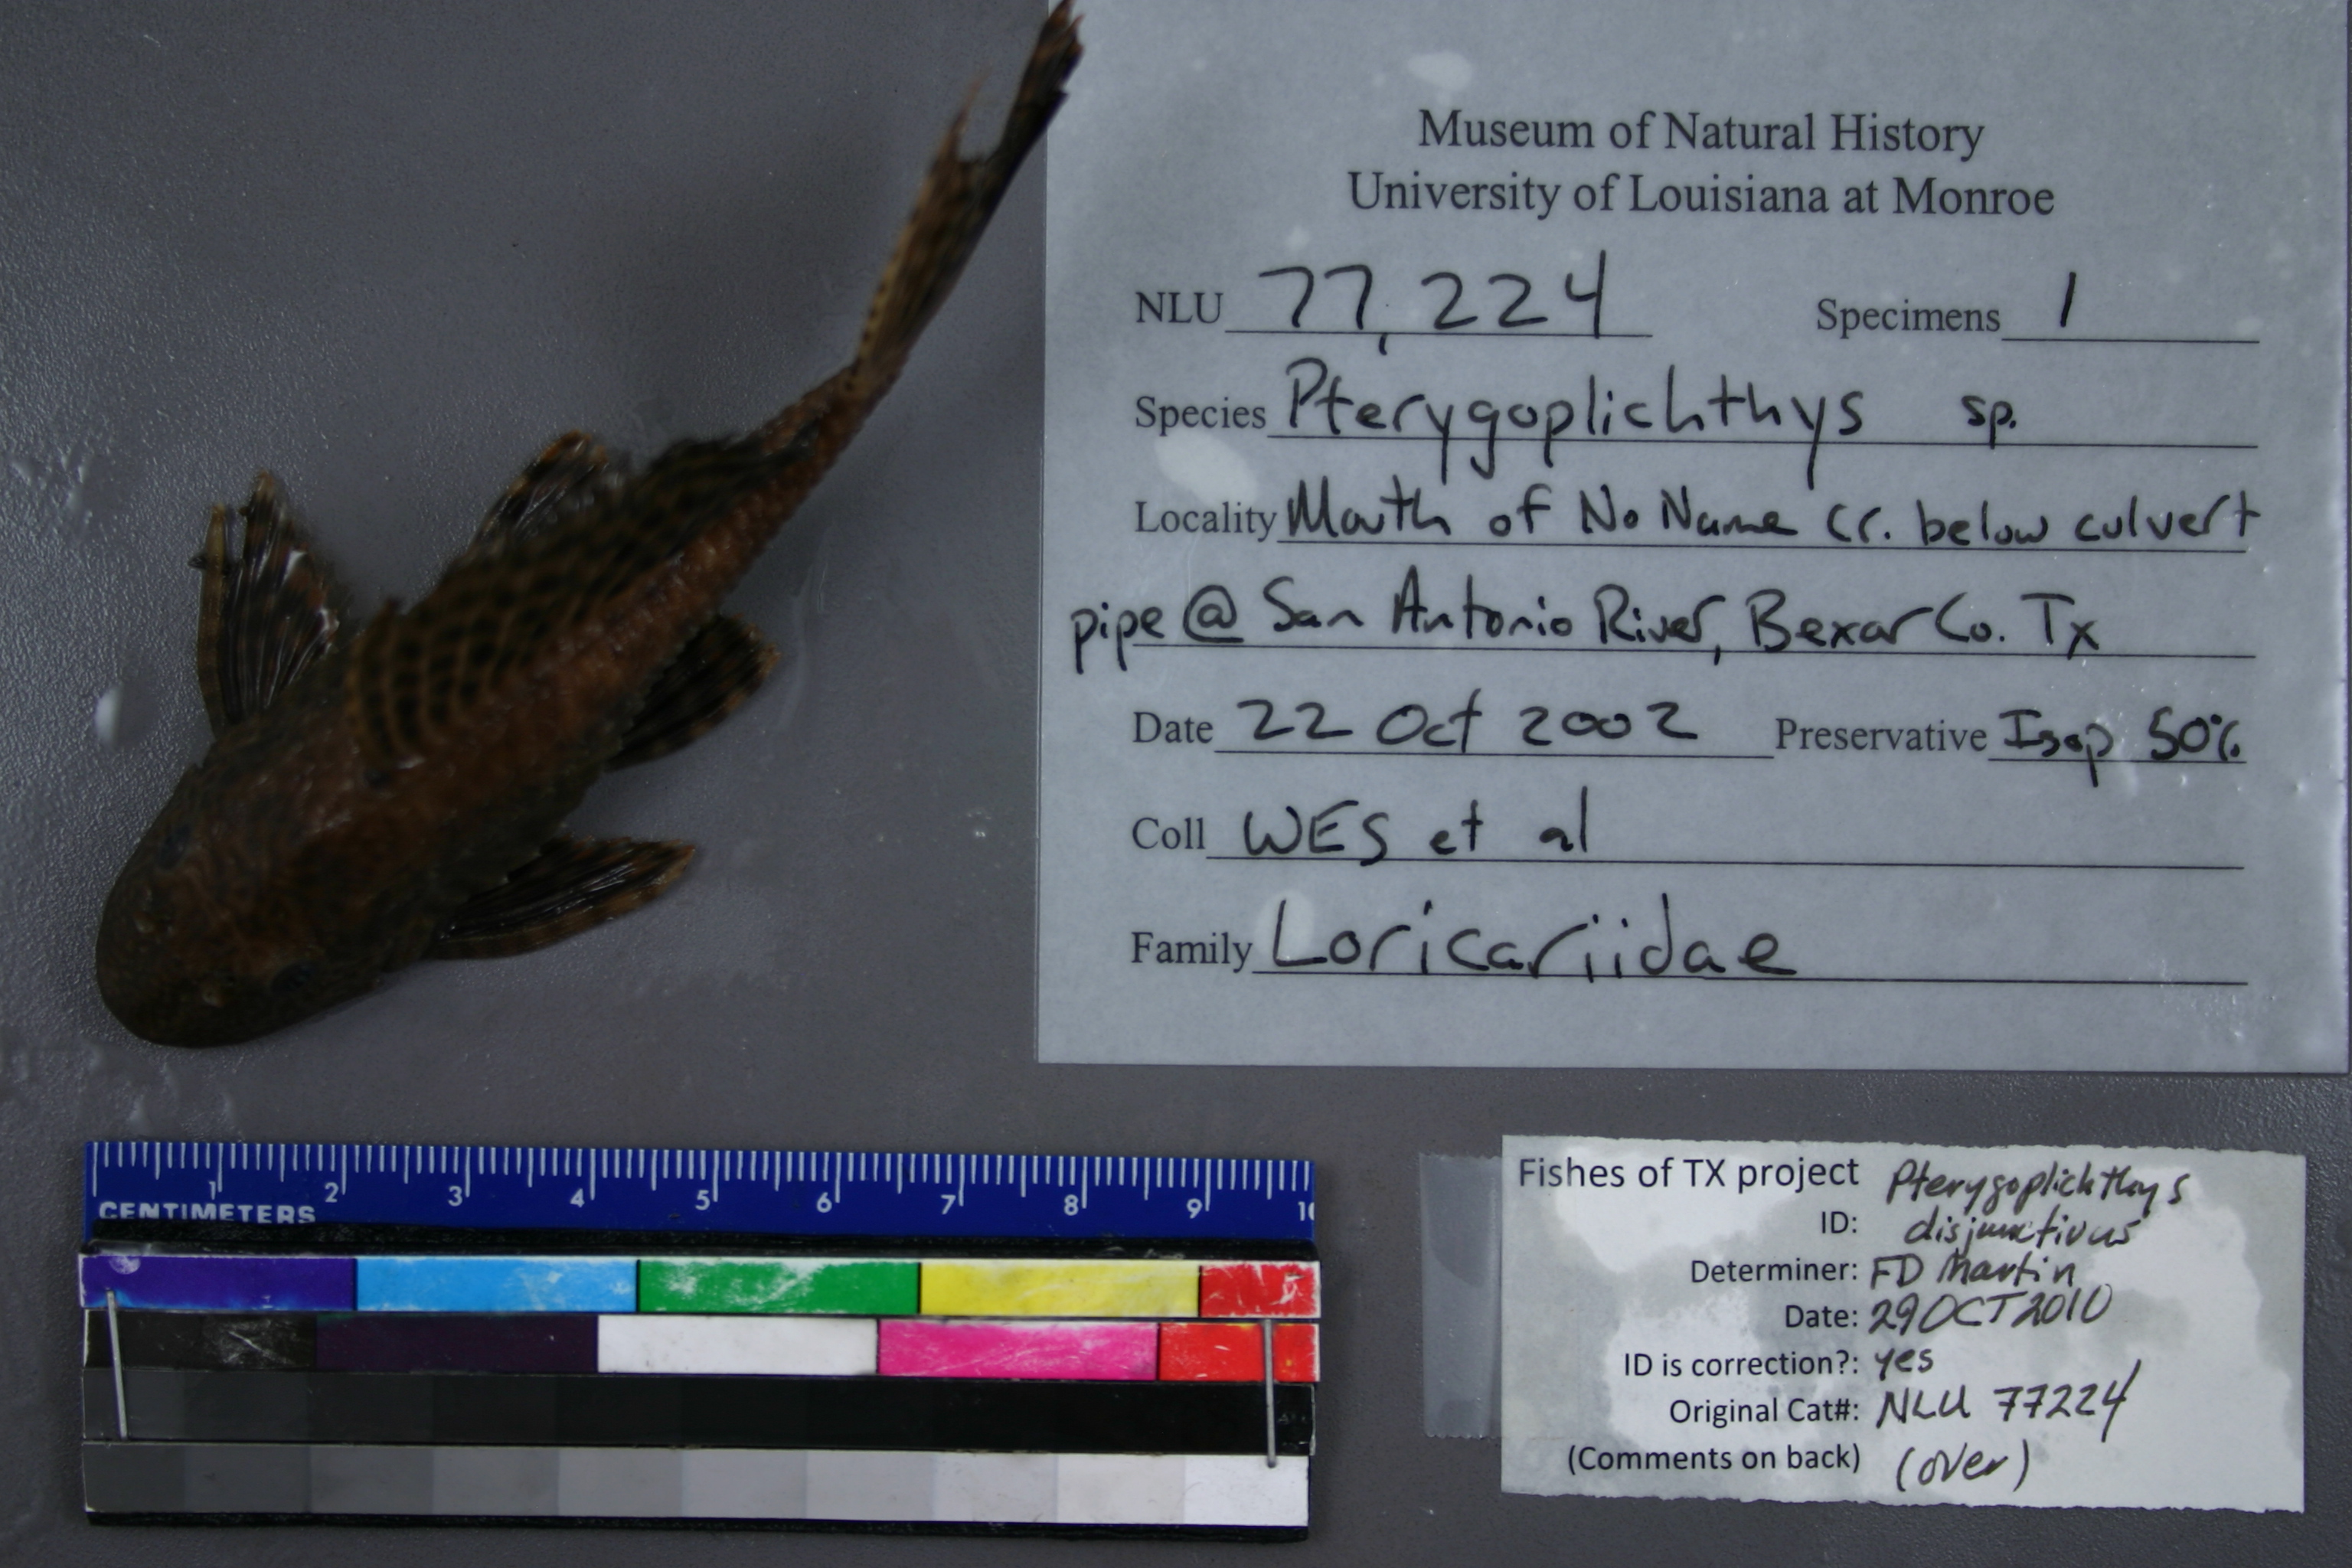 Museum of Natural History
University of Louisiana at Monroe
NLU 77,224 Specimens 1
Species Pterygoplichthys sp.
Locality Mouth of No Name Cr. below culvert
pipe @ San Antonio River, Bexar Co. Tx
Date 22 Oct 2002 Preservative Isop 50%
Coll WES et al
Family Loricariidae
1 2 3 4 5 6 7 8 9 10
CENTIMETERS
Fishes of TX project Pterygoplichthys
ID: disjunctivus
Determiner: FD Martin
Date: 29 OCT 2010
ID is correction?: yes
Original Cat#: NLU 77224
(Comments on back) (over)